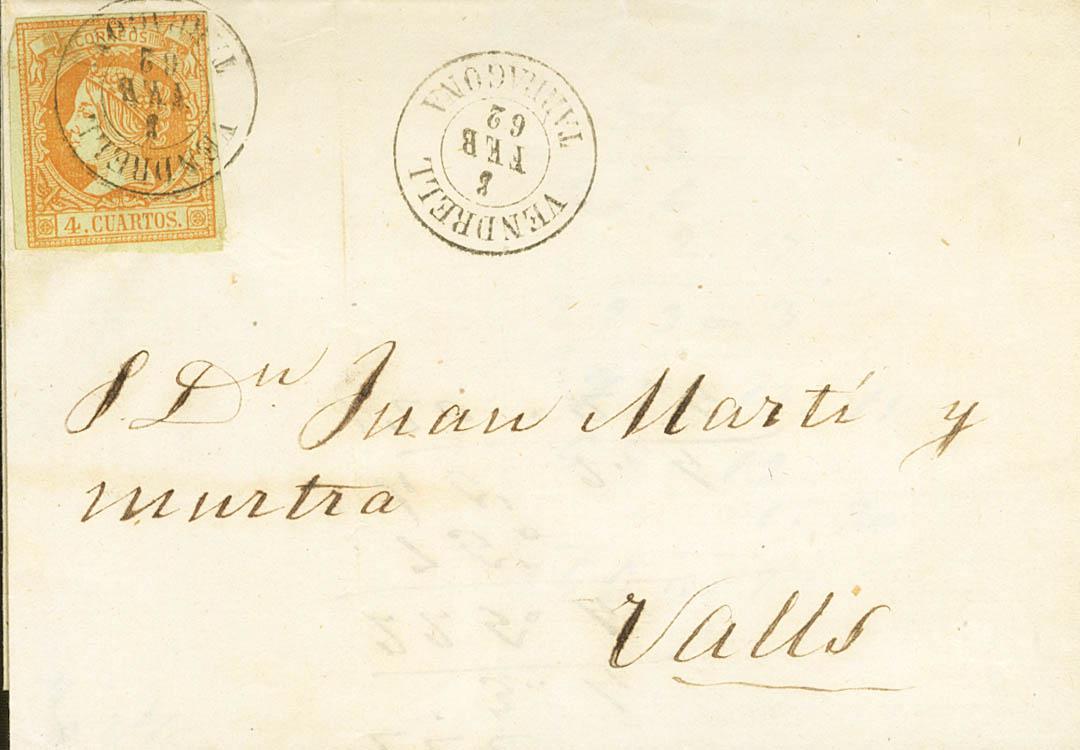 CORREOS
4. CUARTOS.
VENDRELL
FEB
62
VENDRELL
TARRAGONA
FEB
62
S. Dn Juan Martí y
murtra
Valls